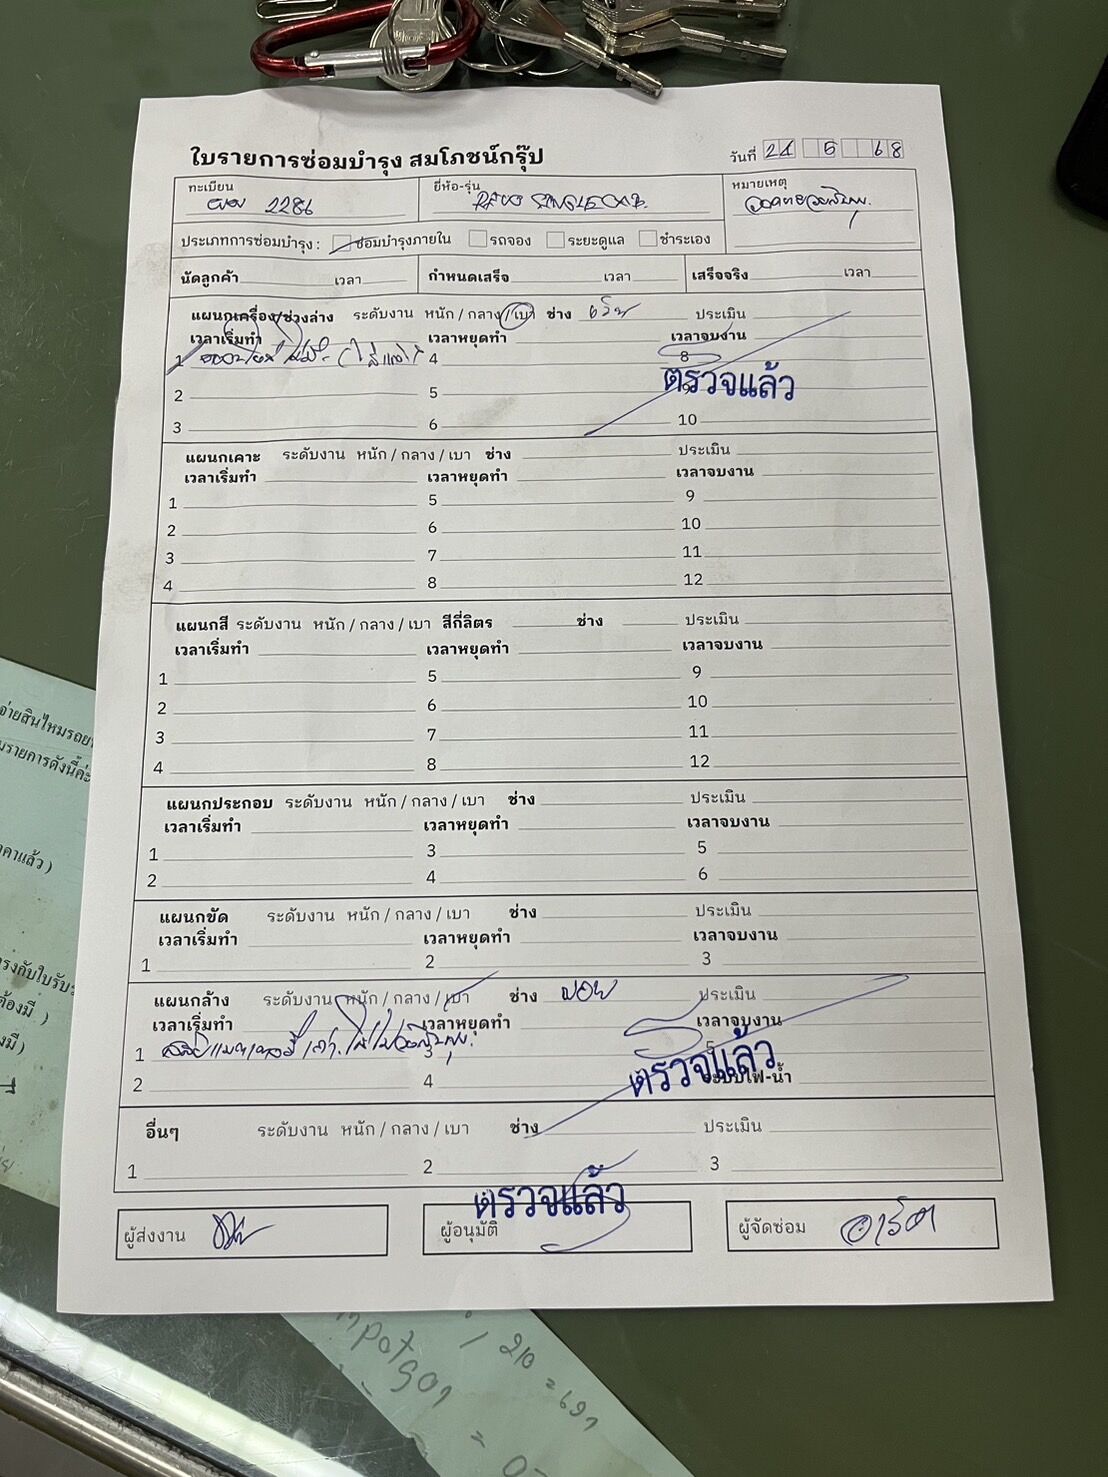 ใบรายการซ่อมบำรุง สมโภชน์กรุ๊ป
วันที่ 24 5 68
ทะเบียน 2286
ยี่ห้อ-รุ่น REVO SINGLE CAB.
หมายเหตุ
ประเภทการซ่อมบำรุง : ซ่อมบำรุงภายใน รถจอง ระยะดูแล ชำระเอง
นัดลูกค้า เวลา กำหนดเสร็จ เวลา เสร็จจริง เวลา
แผนกเครื่อง/ช่วงล่าง ระดับงาน หนัก / กลาง / เบา ช่าง ประเมิน
เวลาเริ่มทำ เวลาหยุดทำ เวลาจบงาน
1 4 8
ตรวจแล้ว
2 5
3 6 10
แผนกเคาะ ระดับงาน หนัก / กลาง / เบา ช่าง ประเมิน
เวลาเริ่มทำ เวลาหยุดทำ เวลาจบงาน
1 5 9
2 6 10
3 7 11
4 8 12
แผนกสี ระดับงาน หนัก / กลาง / เบา สีกี่ลิตร ช่าง ประเมิน
เวลาเริ่มทำ เวลาหยุดทำ เวลาจบงาน
1 5 9
2 6 10
3 7 11
4 8 12
แผนกประกอบ ระดับงาน หนัก / กลาง / เบา ช่าง ประเมิน
เวลาเริ่มทำ เวลาหยุดทำ เวลาจบงาน
1 3 5
2 4 6
แผนกขัด ระดับงาน หนัก / กลาง / เบา ช่าง ประเมิน
เวลาเริ่มทำ เวลาหยุดทำ เวลาจบงาน
1 2 3
แผนกล้าง ระดับงาน หนัก / กลาง / เบา ช่าง ประเมิน
เวลาเริ่มทำ เวลาหยุดทำ เวลาจบงาน
1 3 5
ตรวจแล้ว
2 4 ระบบไฟ-น้ำ
อื่นๆ ระดับงาน หนัก / กลาง / เบา ช่าง ประเมิน
1 2 3
ตรวจแล้ว
ผู้ส่งงาน ผู้อนุมัติ ผู้จัดซ่อม
จ่ายสินไหมรถย
รายการดังนี้ค่ะ
คาแล้ว )
รงกับใบรับ
ต้องมี )
งมี)